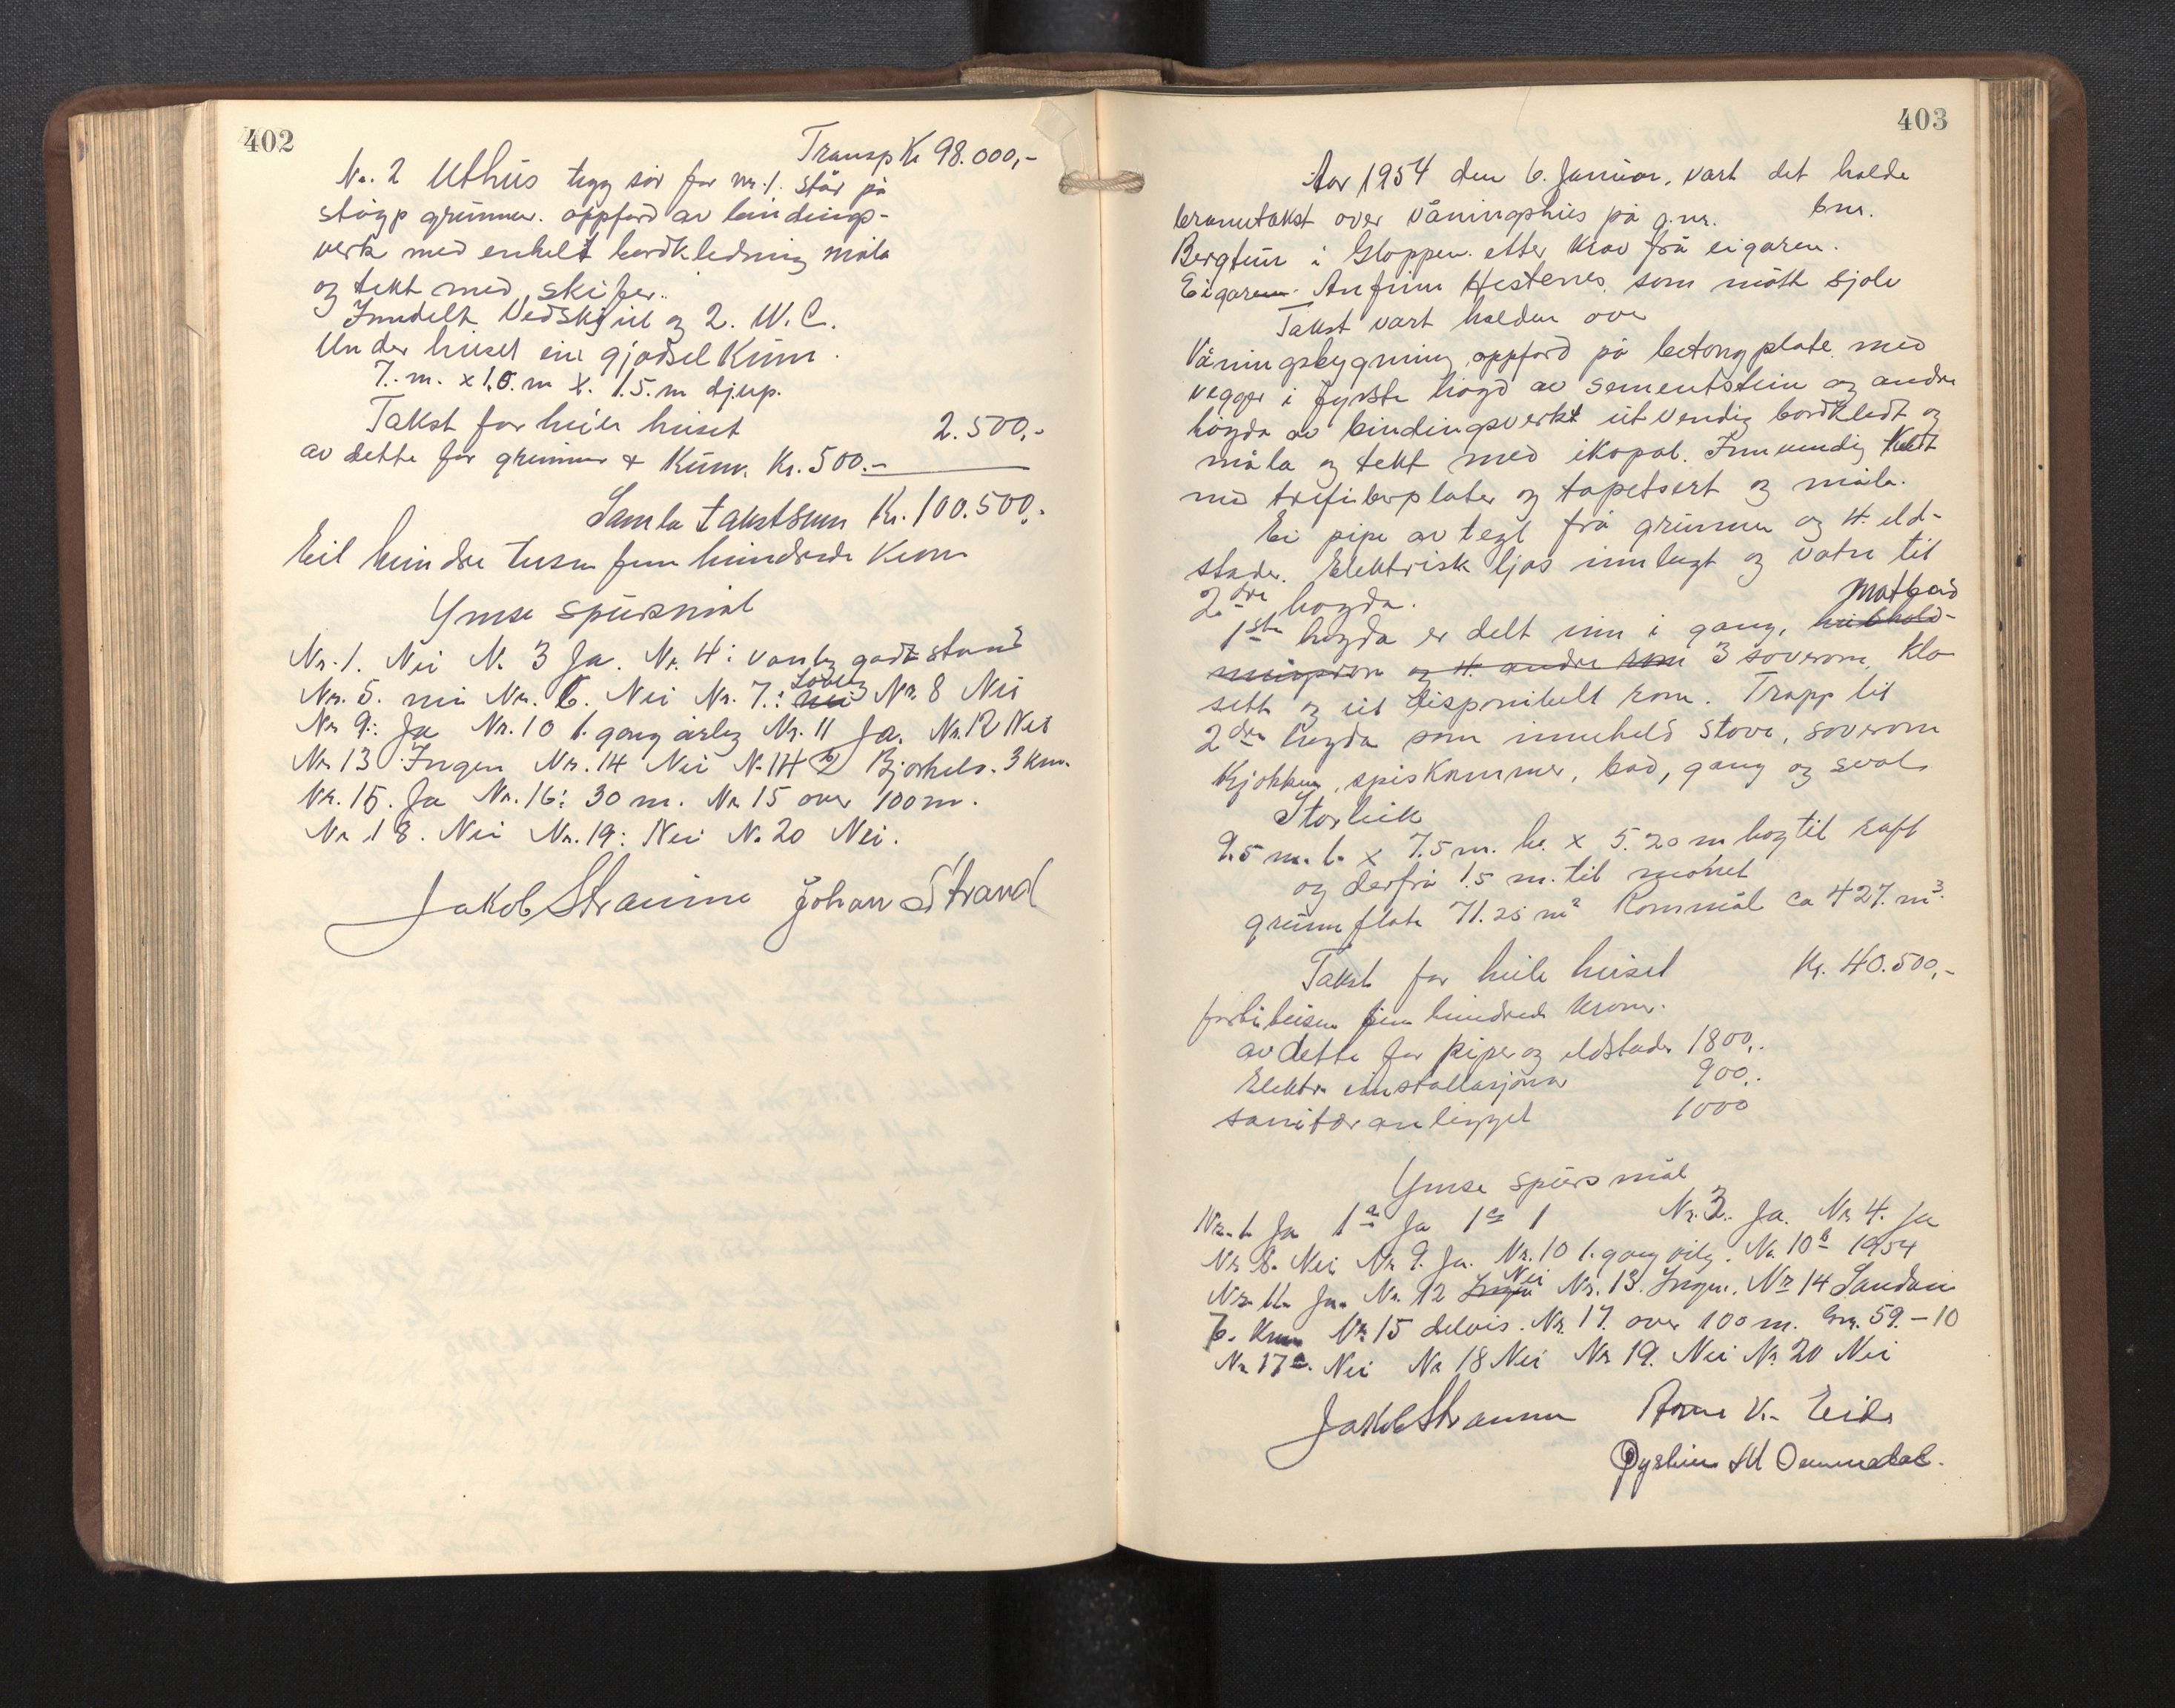 402
Transp Kr 98.000,-
Nr. 2 Uthus bygg sør for nr. 1. står på
støyp grunnmur. oppførd av bindings-
verk med enkelt bordkledning måla
og tekt med skifer.
Inndelt Vedskjul og 2. W.C.
Under huset ein gjødselkum.
7. m. x 1.5. m x. 1.5. m djup.
Takst for heile huset 2.500,-
av dette for grunnmur & Kum. Kr. 500.-
Samla takstsum Kr. 100.500,-
Eit hundre tusn fem hundrede Kron
Ymse spursmål
Nr. 1. Nei N. 3 Ja. Nr. 4: vanleg godt stand
Nr. 5. nei Nr. 6. Nei Nr. 7.: Lovleg Nr. 8 Nei
Nr 9: Ja Nr. 10 1. gang årleg Nr. 11 Ja. Nr. 12 Nei
Nr 13 Ingen Nr. 14 Nei N. 14 b Bjørkelo. 3 km.
Nr. 15. Ja Nr. 16: 30 m. Nr 15 over 100 m.
Nr 18. Nei Nr. 19: Nei N. 20 Nei.
Jakob Straume Johan Strand
403
Aar 1954 den 6. Januar, vart det halde
branntakst over våningshus på g.nr. bnr.
Bergtun i Gloppen. etter krav frå eigaren.
Eigaren Anfinn Hestenes. som møtte sjølv
Takst vart halden over
Våningsbygning oppførd på betongplate med
vegger i fyrste høgd av sementstein og andre
høgda av bindingsverkt utvendig bordkledt og
måla og tekt med ikopal. Innvendig kledt
med trefiberplater og tapetsert og måla.
Ei pipe av tegl frå grunnen og 4. eld-
stader. Elektrisk ljos innlagt og vatn til
2dre høgda.
1ste høgda er delt inn i gang, Matbod
3 soverom, Klo
sett og eit disponibelt rom. Trapp til
2dre høgda som inneheld stove, soverom
Kjøkken, spiskammer, bad, gang og sval.
Storleik
9.5 m. l. x 7.5 m. br. x 5.20 m høg til raft
og derfrå 1.5 m. til mønet
grunnflate 71.25 m² Rommål ca 427. m³.
Takst for heile huset Kr. 40.500,-
førti tusen fem hundrede kroner.
av dette for piper og eldstader 1800,.
Elektr. installasjonar 900,.
sanitær anlegget 1000
Ymse spursmål
Nr. 1 Ja 1a Ja 1c 1 Nr. 3. Ja. Nr 4. Ja
Nr 8. Nei Nr 9. Ja. Nr. 10 1. gang årleg. Nr. 10 b 1954
Nr. 11. Ja. Nr. 12 Nei Nr. 13. Ingen. Nr 14 Sandane
7. Km Nr 15 delvis. Nr. 17. over 100 m. Gnr. 59. - 10
Nr 17 a. Nei Nr 18 Nei Nr 19. Nei Nr. 20 Nei
Jakob Straume Arne V. Eide
Øystein M Ommedal.